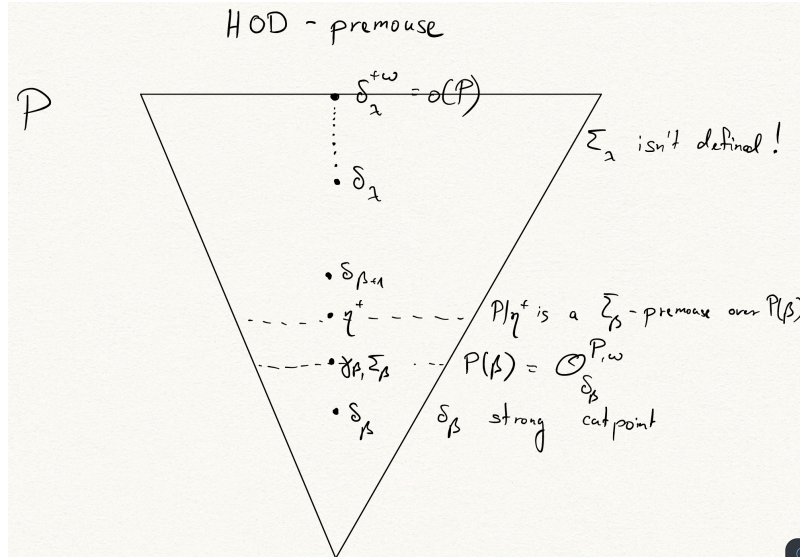 HOD - premouse
P
δ_λ^{+ω} = o(P)
Σ_λ isn't defined !
δ_λ
δ_{β+1}
η^+
P|η^+ is a Σ_β - premouse over P(β)
γ_β, Σ_β
P(β) = O_{δ_β}^{P,ω}
δ_β
δ_β strong cutpoint